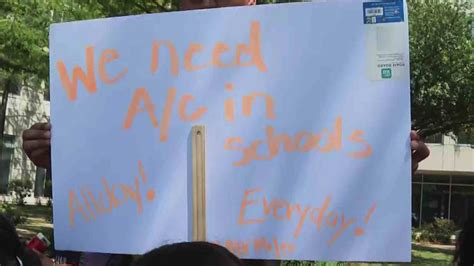 We need
A/C in
schools
All day!
Everyday!